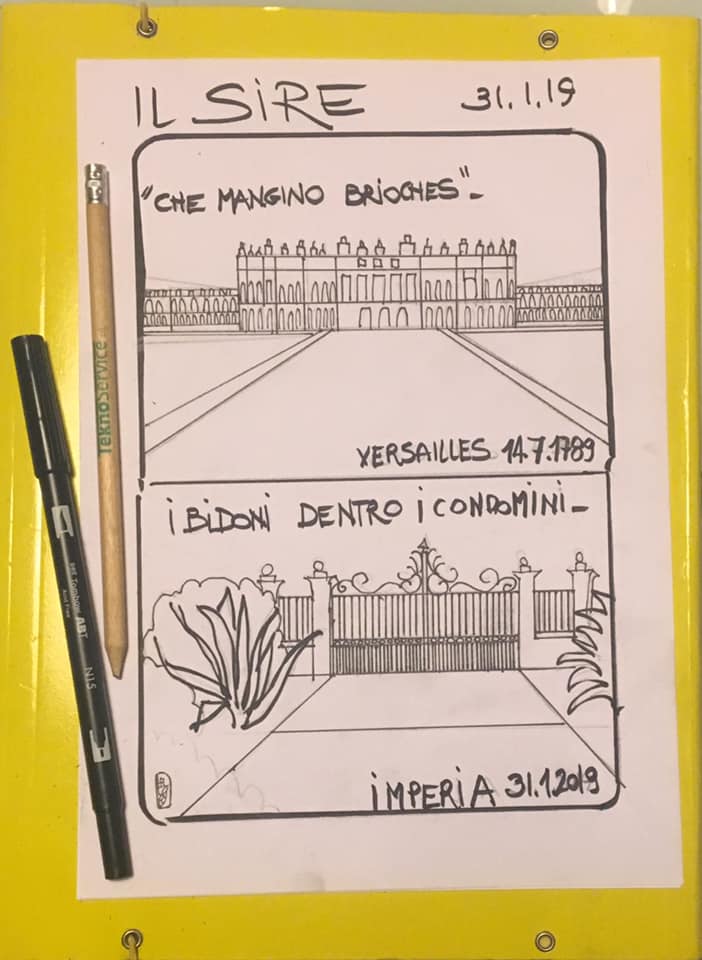 IL SIRE
31.1.19
"CHE MANGINO BRIOCHES"-
VERSAILLES 14.7.1789
I BIDONI DENTRO I CONDOMINI-
IMPERIA 31.1.2019
TeknoService
ABT
N15